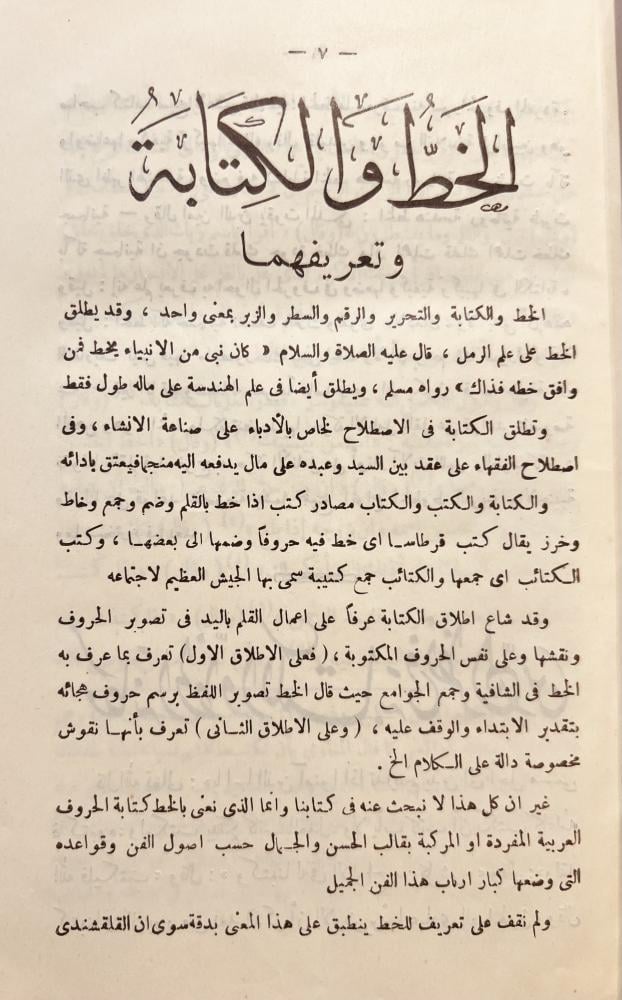 — ٧ —
الخَطُّ وَالْكِتَابَةُ
وتعريفهما
الخط والكتابة والتحرير والرقم والسطر والزبر بمعنى واحد ، وقد يطلق
الخط على علم الرمل ، قال عليه الصلاة والسلام « كان نبى من الانبياء يخط فمن
وافق خطه فذاك » رواه مسلم ، ويطلق أيضا فى علم الهندسة على ماله طول فقط
وتطلق الكتابة فى الاصطلاح الخاص بالأدباء على صناعة الانشاء ، وفى
اصطلاح الفقهاء على عقد بين السيد وعبده على مال يدفعه اليه منجما فيعتق بادائه
والكتابة والكتب والكتاب مصادر كتب اذا خط بالقلم وضم وجمع وخاط
وخرز يقال كتب قرطاسا اى خط فيه حروفاً وضمها الى بعضها ، وكتب
الكتائب اى جمعها والكتائب جمع كتيبة سمى بها الجيش العظيم لاجتماعه
وقد شاع اطلاق الكتابة عرفاً على اعمال القلم باليد فى تصوير الحروف
ونقشها وعلى نفس الحروف المكتوبة ، ( فعلى الاطلاق الاول) تعرف بما عرف به
الخط فى الشافية وجمع الجوامع حيث قال الخط تصوير اللفظ برسم حروف هجائه
بتقدير الابتداء والوقف عليه ، ( وعلى الاطلاق الثانى ) تعرف بأنها نقوش
مخصوصة دالة على الكلام الخ .
غير ان كل هذا لا نبحث عنه فى كتابنا وانما الذى نعنى بالخط كتابة الحروف
العربية المفردة او المركبة بقالب الحسن والجمال حسب اصول الفن وقواعده
التى وضعها كبار ارباب هذا الفن الجميل
ولم نقف على تعريف للخط ينطبق على هذا المعنى بدقة سوى ان القلقشندى